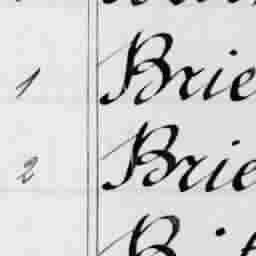 1 Brie
2 Brie